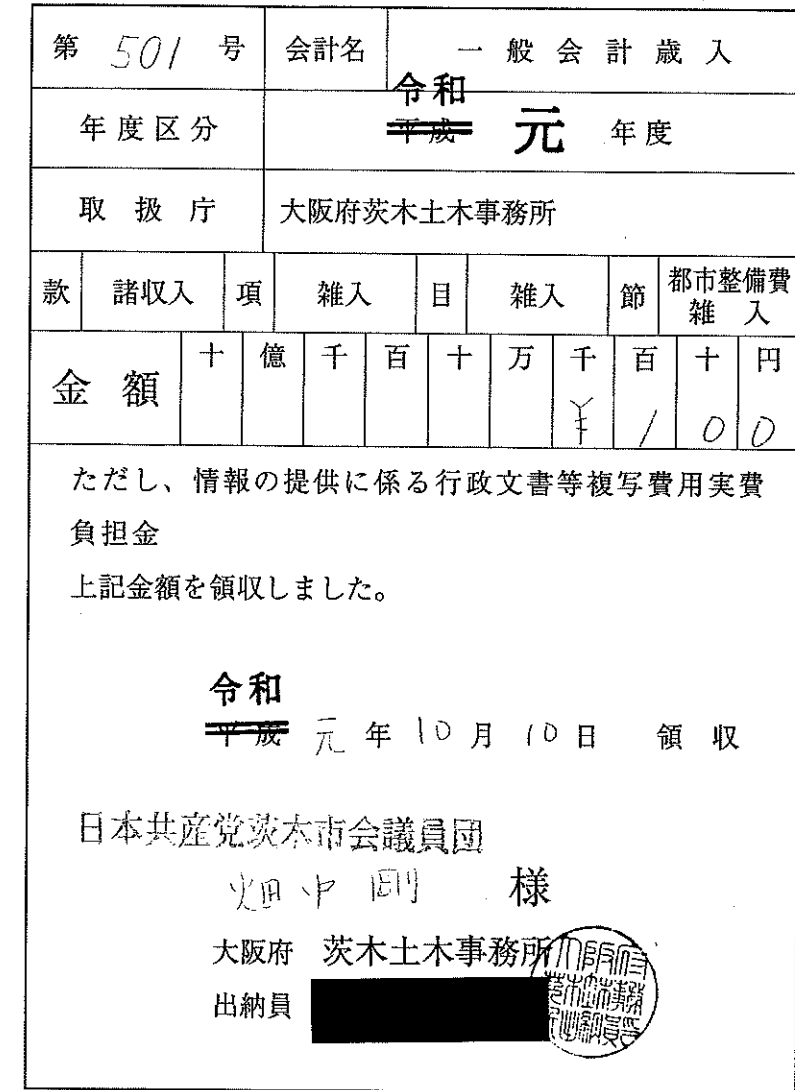 第 501 号 会計名 一般会計歳入
令和
年度区分 平成 元 年度
取扱庁 大阪府茨木土木事務所
款 諸収入 項 雑入 目 雑入 節 都市整備費雑入
金額 十 億 千 百 十 万 千 百 十 円
¥ 1 0 0
ただし、情報の提供に係る行政文書等複写費用実費
負担金
上記金額を領収しました。
令和
平成 元 年 10 月 10 日 領収
日本共産党茨木市会議員団
畑中 剛 様
大阪府 茨木土木事務所
出納員